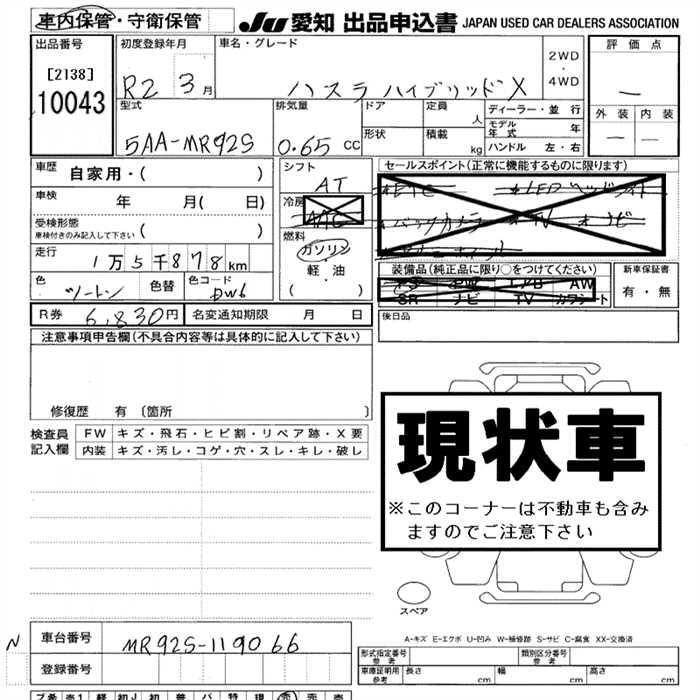 車内保管・守衛保管
JU 愛知 出品申込書 JAPAN USED CAR DEALERS ASSOCIATION
出品番号
[2138]
10043
初度登録年月
R2 3月
車名・グレード
ハスラ ハイブリッドX
2WD
・
4WD
評価点
—
外装 内装
— —
型式
5AA-MR92S
排気量
0.65 CC
ドア
形状
定員 人
積載 kg
ディーラー・並行
モデル年式 年
ハンドル 左・右
車歴
自家用・( )
車検 年 月( 日)
受検形態
車検付きのみ記入して下さい ( )
走行
1万5千878km
色
ツートン
色替
色コード
DW6
シフト
AT
冷房
AAC
燃料
ガソリン
・
軽油
( )
セールスポイント(正常に機能するものに限ります)
装備品(純正品に限り○をつけてください)
AW
SR ナビ TV カワシート
新車保証書
有・無
R券 6,830円
名変通知期限 月 日
後日品
注意事項申告欄(不具合内容等は具体的に記入して下さい)
修復歴 有 〔箇所 〕
検査員
記入欄
FW キズ・飛石・ヒビ割・リペア跡・X要
内装 キズ・汚レ・コゲ・穴・スレ・キレ・破レ
現状車
※このコーナーは不動車も含み
ますのでご注意下さい
スペア
A-キズ E-エクボ U-凹み W-補修跡 S-サビ C-腐食 XX-交換済
N
車台番号 MR92S-119066
登録番号
形式指定番号
参考
類別区分番号
参考
車庫証明用
参考
長さ cm 幅 cm 高さ cm